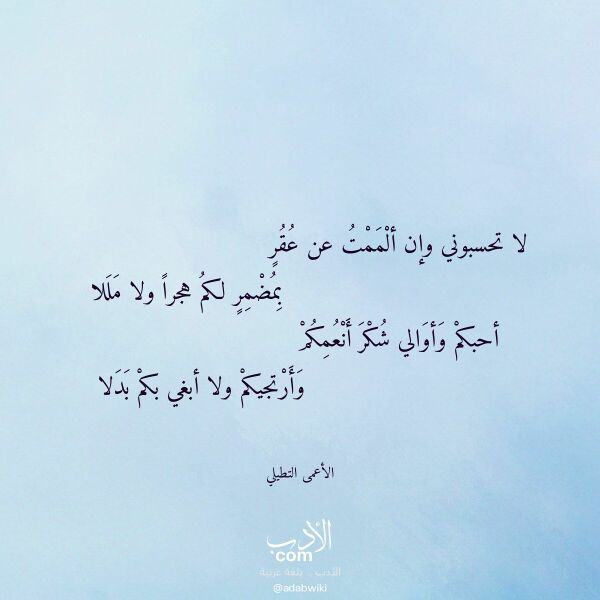 لا تحسبوني وإن ألْمَمْتُ عن عُقُرٍ
بِمُضْمِرٍ لكمُ هجراً ولا مَلَلا
أحبكمْ وَأوَالي شُكْرَ أَنْعُمِكُمْ
وَأَرْتجيكمْ ولا أبغي بكمْ بَدَلا
الأعمى التطيلي
الأدب
com
الأدب .. بلغة عربية
@adabwiki